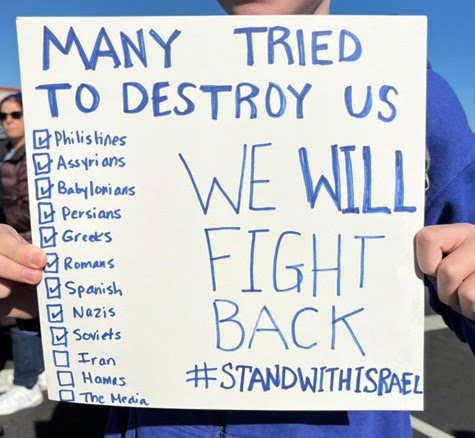 MANY TRIED
TO DESTROY US
☑ Philistines
☑ Assyrians
☑ Babylonians
☑ Persians
☑ Greeks
☑ Romans
☑ Spanish
☑ Nazis
☑ Soviets
☐ Iran
☐ Hamas
☐ The Media
WE WILL
FIGHT
BACK
#STANDWITHISRAEL